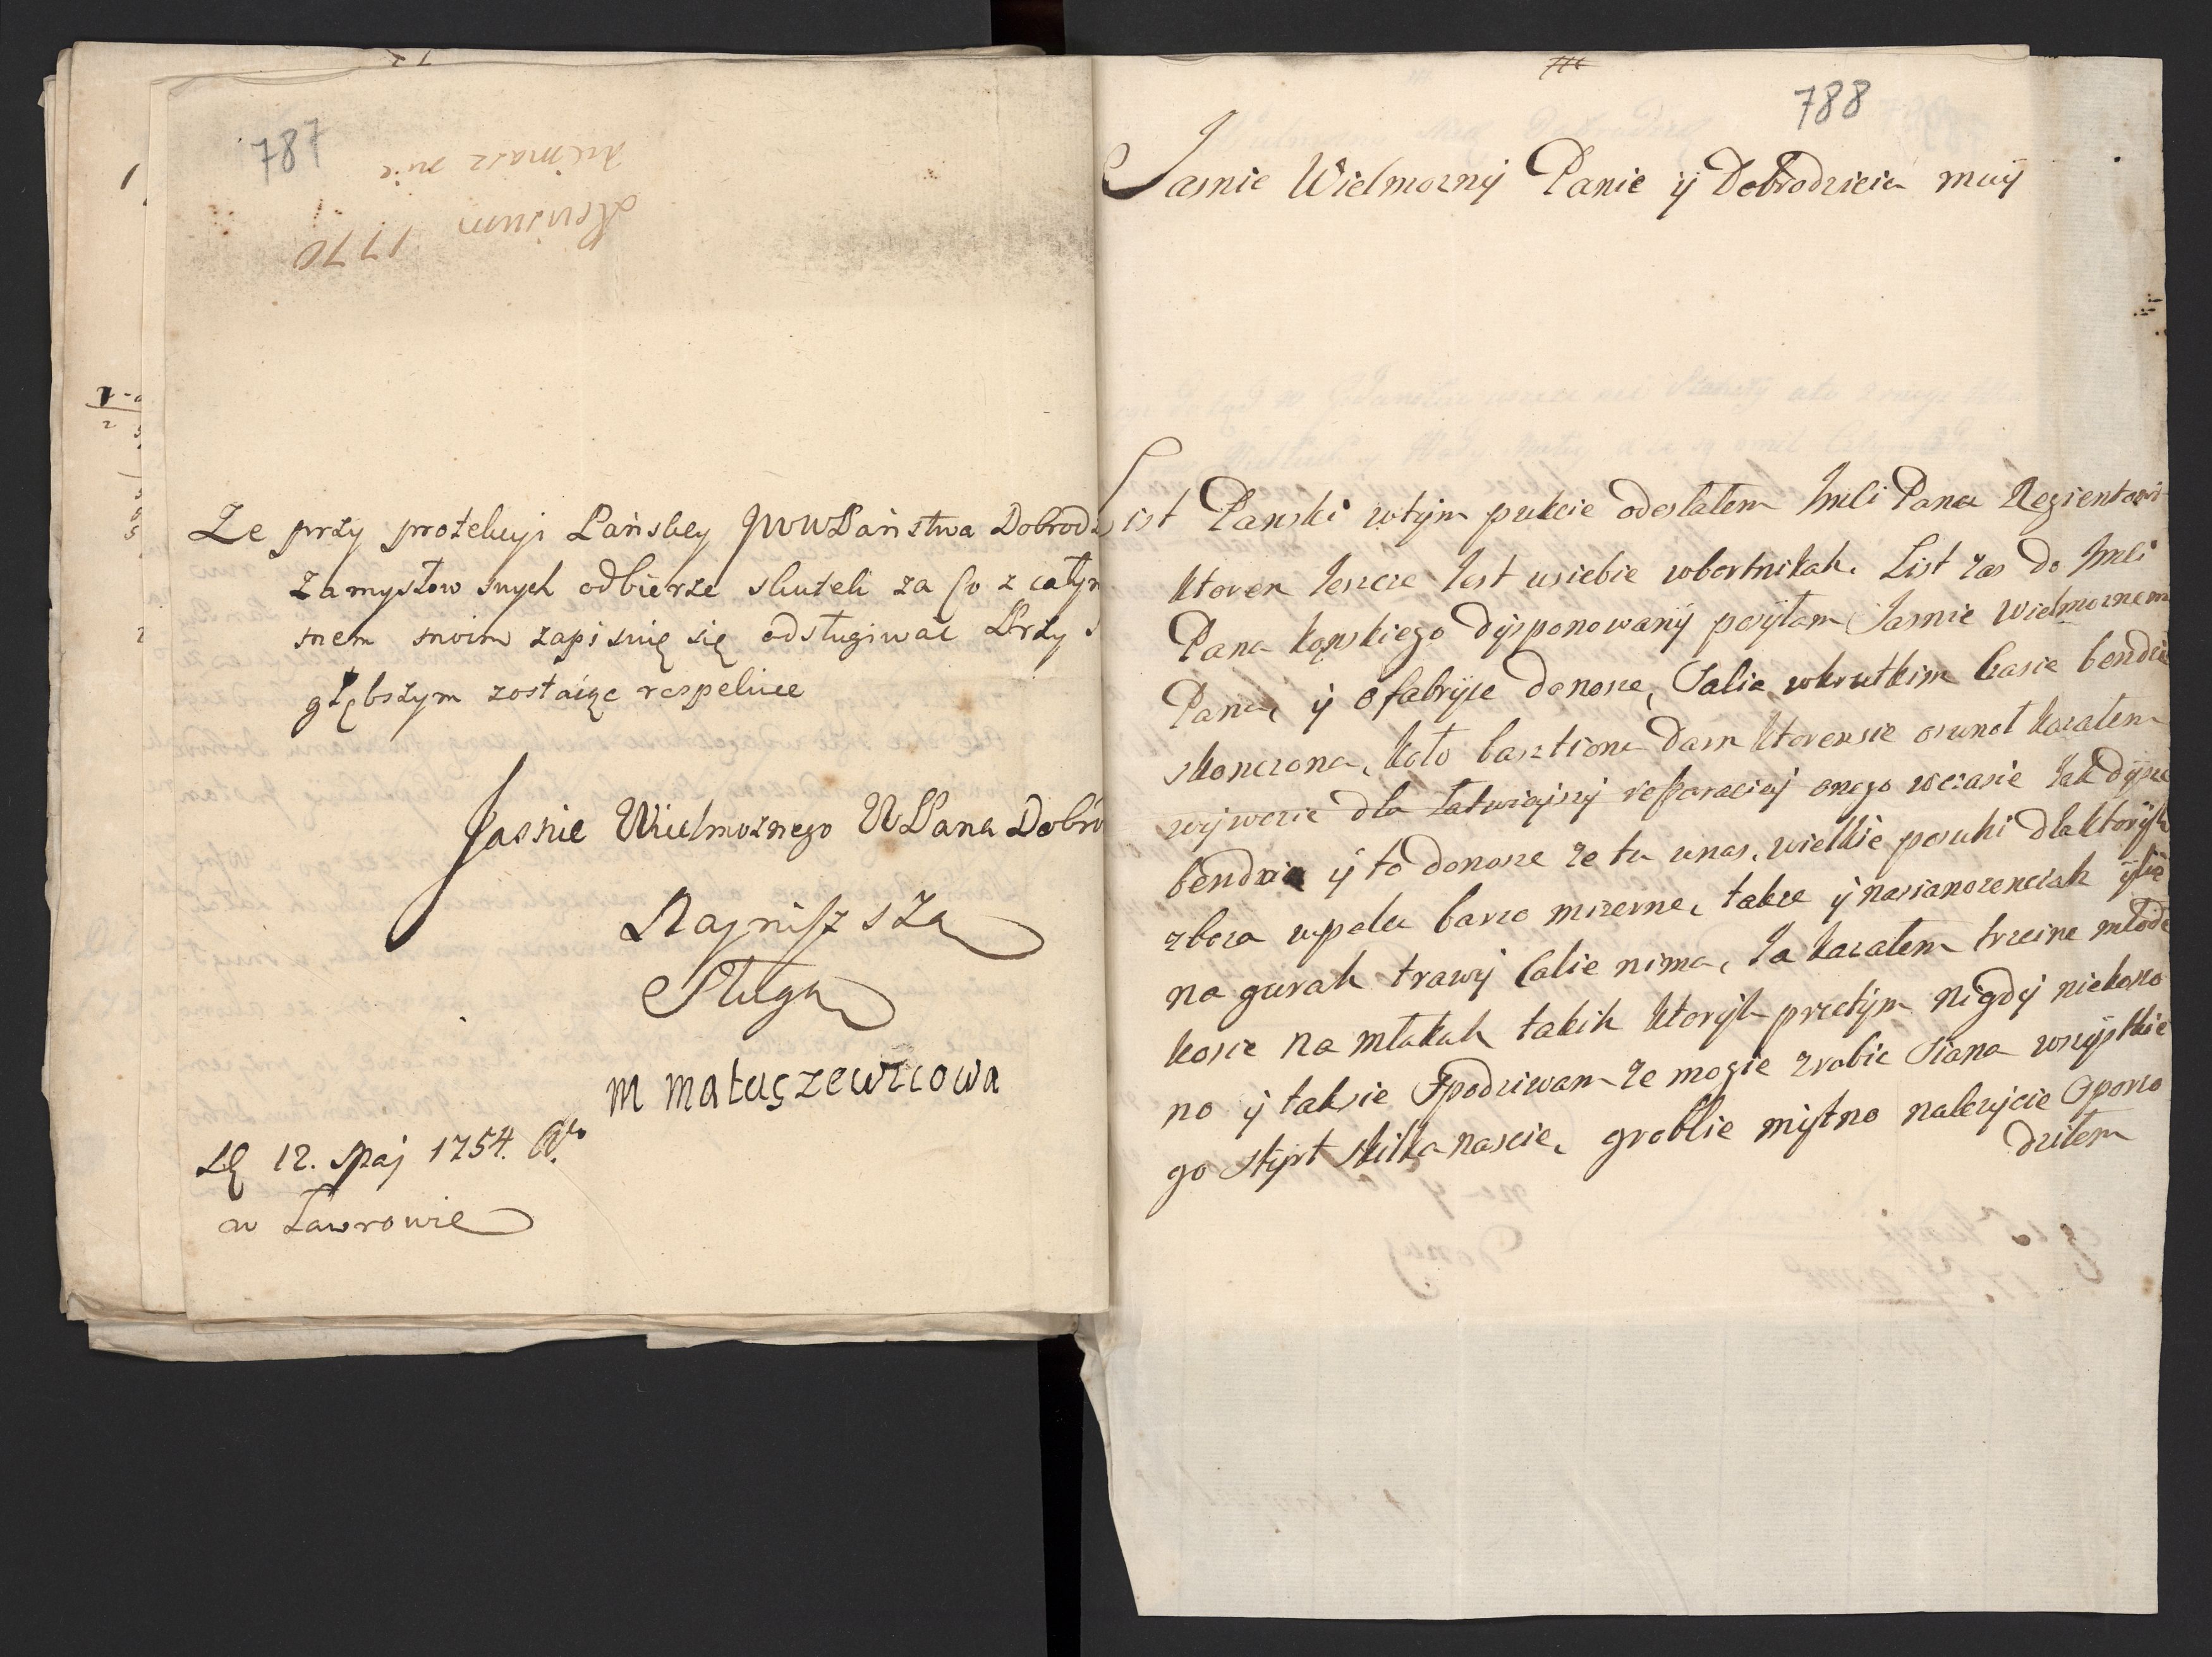 787
Revisum 1770
niemasz nic
Ze przy protekcyi Pańskiey JWWPaństwa Dobrodz
zamysłow swych odbierze skutek za co z całym
mem moim zapisuię się odsługiwać Przy
głębszym zostaiąc respekcie
Jasnie Wielmoznego WPana Dobro
Nayniższa
Sługa
M Matuszewicowa
12. Maj 1754.
w Ławrowie
788
Jasnie Wielmoznÿ Panie ÿ Dobrodzieiu muÿ
List Panski wtÿm pukcie odesłałem Jmci Pana Regientowi
ktoren Jescze Jest usiebie wbortnikah. List zas do Jmci
Pana kąnskiego dÿsponowanÿ posÿłam Jasnie wielmoznemu
Pana, ÿ o fabrÿce donosze, Salia wkrutkim czasie bendzie
skonczona, koło basztionu dam ktorensie osunoł kazałem
wÿwozic dla Łatwiejszÿ reparaciej onego wczasie Jak dÿsze
bendzie ÿ to donosze ze tu unas, wielkie posuhi dlaktorÿh
zboza wpolu barzo mizerne, takze ÿ nasianozenciah
na gurah trawÿ Calie nima, Ja kazałem trzcine młode
kosic na młakah takih ktorÿh przetÿm nigdÿ niekoszo
no ÿ taksie Spodziwam ze mogie zrobic Siana wszÿstkie
go stÿrt kilkanascie, groblie mÿtno nalezÿcie Oporzo
dzilem